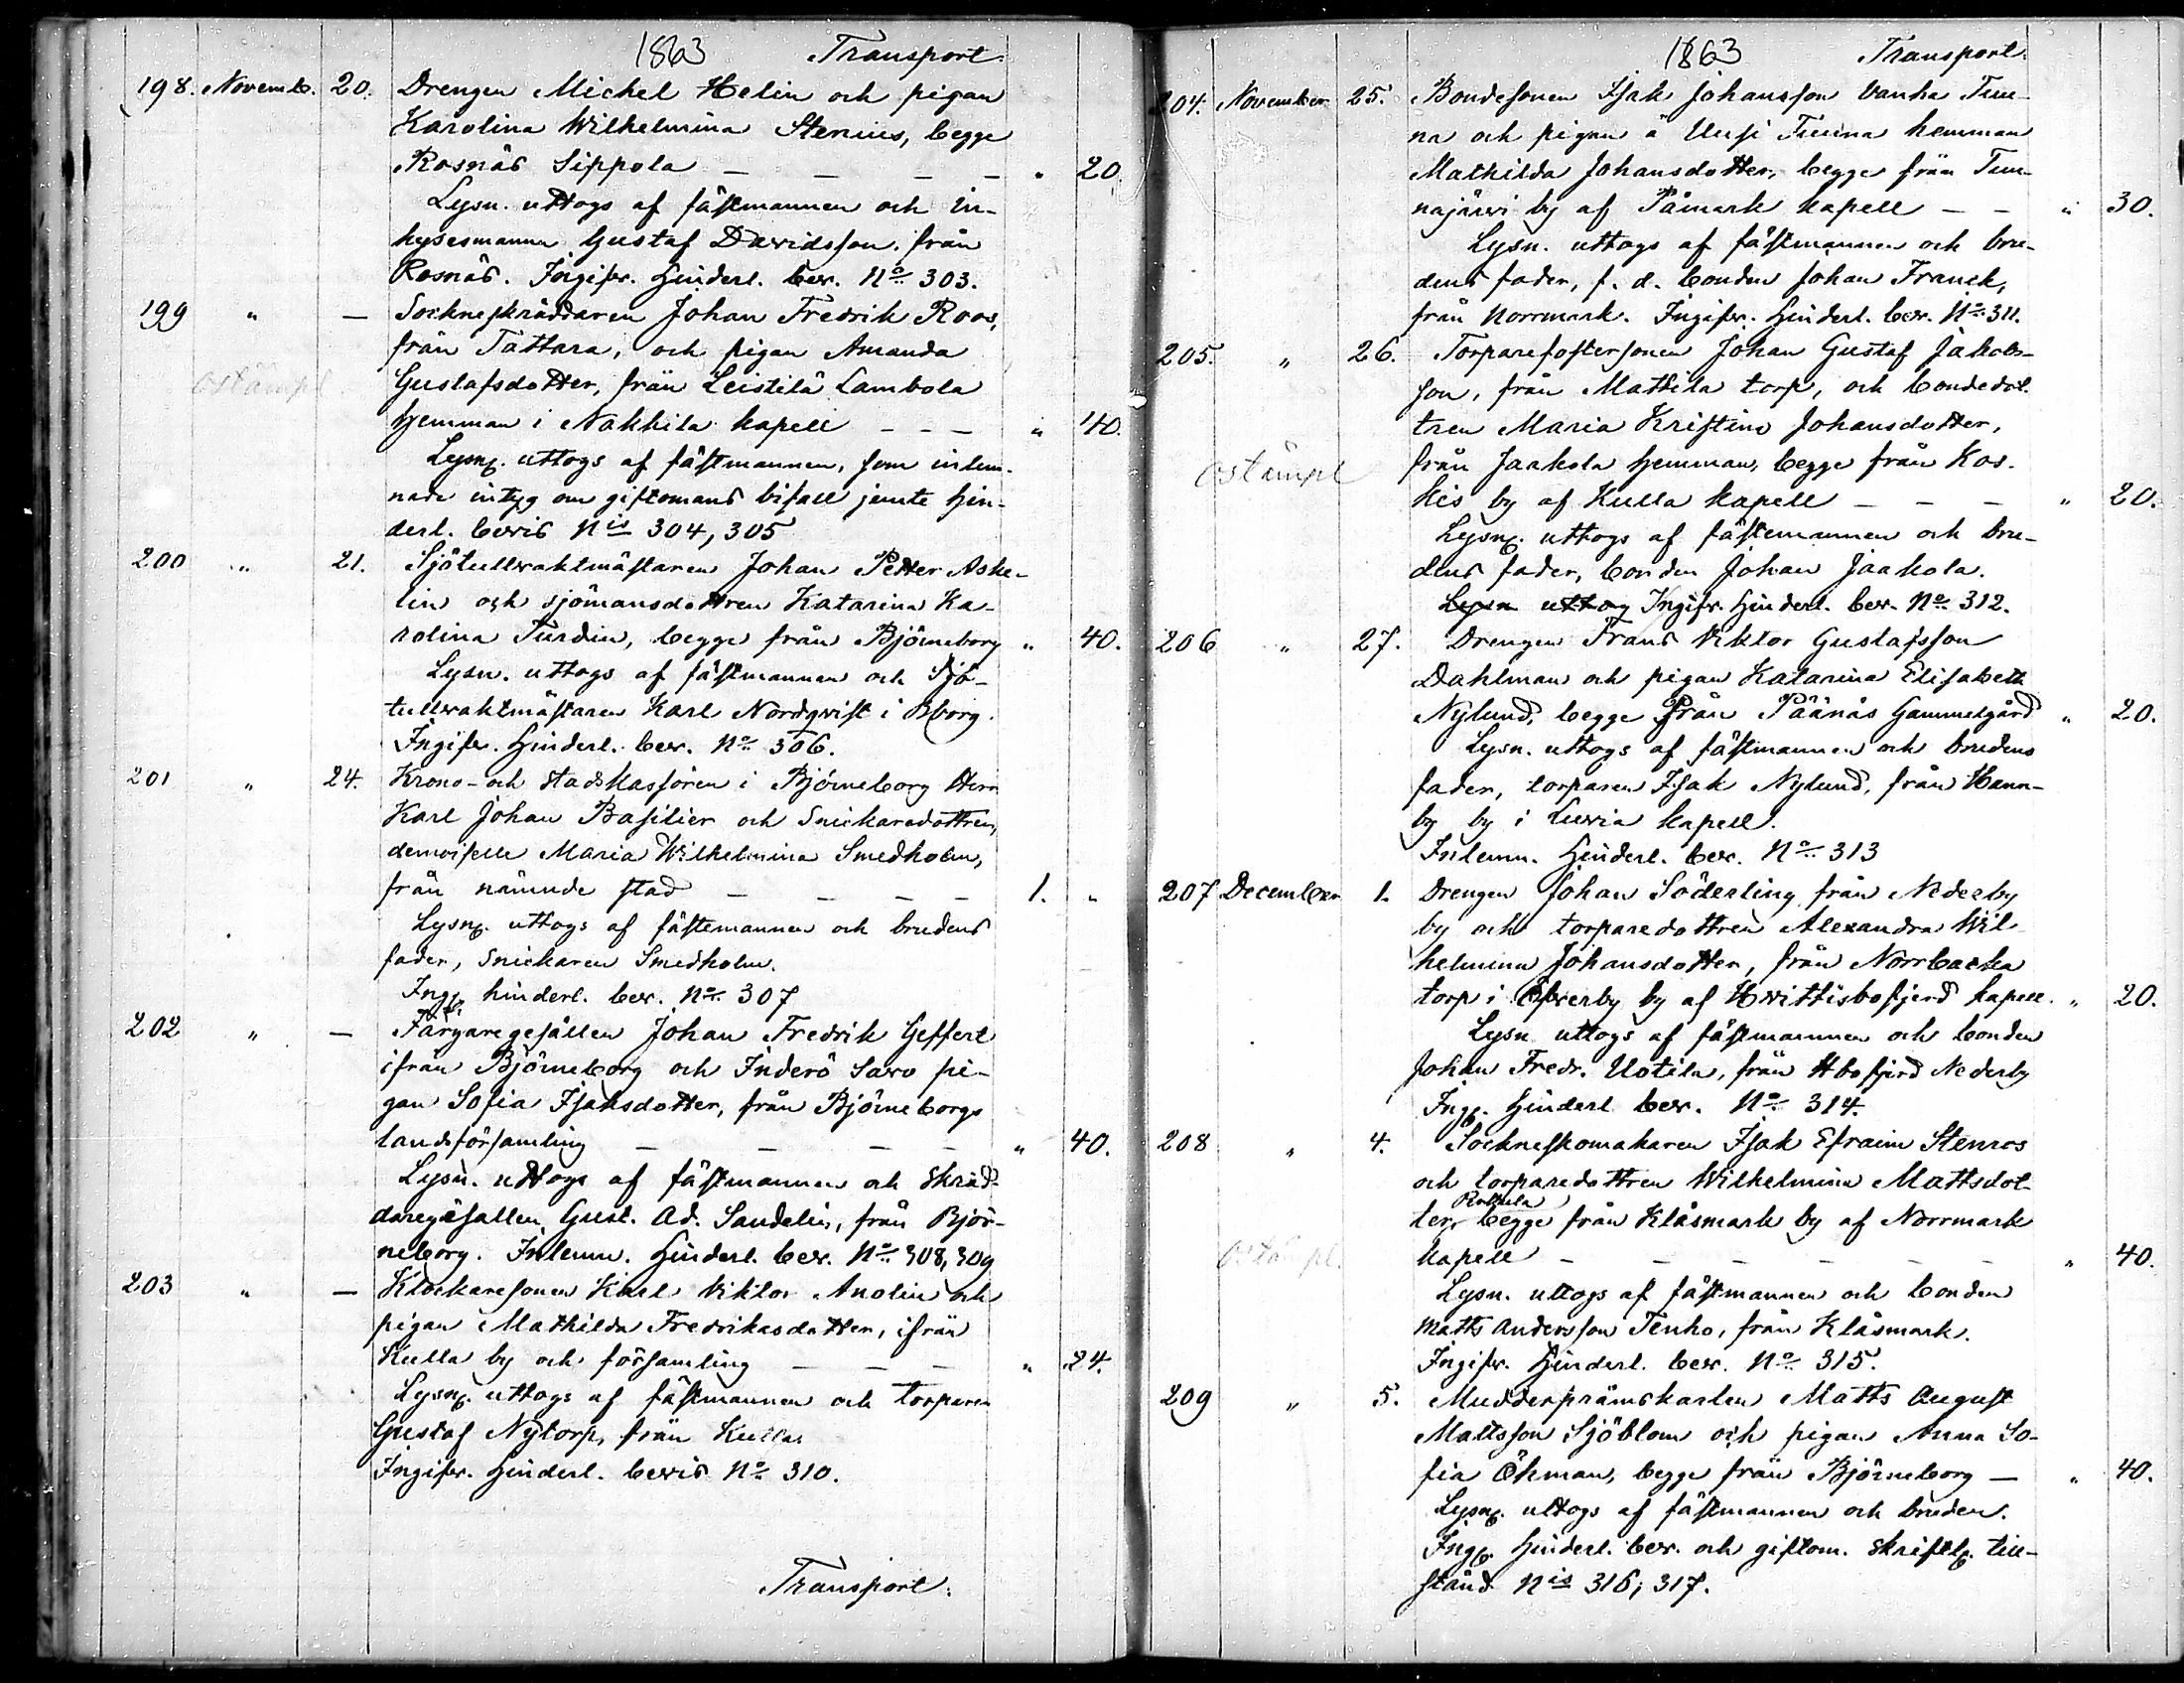 1863 Transport.
198. Novemb. 20. Drengen Michel Helin och pigan
Karolina Wilhelmina Stenius, begge
Rosnäs Sippola — — — — " 20.
Lysn. uttogs af fästmannen och in-
hysesmannen Gustaf Davidsson, från
Rosnäs. Ingifv. Hinderl. bev. No 303.
199 " — Sockneskräddaren Johan Fredrik Roos,
från Tattara, och pigan Amanda
ostämpl Gustafsdotter, från Leistilä Lambola
hemman i Nakkila kapell — — — " 40.
Lysng. uttogs af fästmannen, som inlem-
nade intyg om giftomans bifall jemte hin-
derl. bevis Nis 304, 305
200 " 21. Sjötullvaktmästaren Johan Petter Aske-
lin och sjömansdottren Katarina Ka-
rolina Turdin, begge från Björneborg " 40.
Lysn. uttogs af fästmannen och Sjö-
tullvaktmästaren Karl Nordqvist i Bborg.
Ingifv. Hinderl. bev. No 306.
201 " 24. Krono- och stadskassören i Björneborg Herr
Karl Johan Basilier och Snickaredottren,
demoiselle Maria Wilhelmina Smedholm,
från nämnde stad — — — — 1. "
Lysng. uttogs af fästemannen och brudens
fader, Snickaren Smedholm.
Ingf. hinderl. bev. No 307
202 " — Färgaregesällen Johan Fredrik Geffert
ifrån Björneborg och Inderö Savo pi-
gan Sofia Isaksdotter, från Björneborgs
landsförsamling — — — — " 40.
Lysn. uttogs af fästmannen och Skräd-
daregesällen Gust. Ad. Sandelin, från Björ-
neborg. Inlemn. Hinderl. bev. No 308, 309
203 " — Klockaresonen Karl Viktor Anolin och
pigan Mathilda Fredrikasdotter, ifrån
Kulla by och församling — — — " 24.
Lysng. uttogs af fästmannen och torparen
Gustaf Nytorp, från Kulla
Ingifv. Hinderl. bevis No 310.
Transport.
1863 Transport.
204. November 25. Bondesonen Isak Johansson Vanha Tuu-
na och pigan å Uusi Tuuna hemman
Mathilda Johansdotter, begge från Tuu-
najärvi by af Påmark kapell — — " 30.
Lysn. uttogs af fästmannen och bru-
dens fader, f. d. bonden Johan Franck,
från Norrmark. Ingifv. Hinderl. bev. No 311.
205. " 26. Torparefostersonen Johan Gustaf Jakobs-
son, från Mattila torp, och bondedot-
tren Maria Kristina Johansdotter,
ostämpl från Jaakola hemman, begge från Kos-
kis by af Kulla kapell — — — " 20.
Lysng. uttogs af fästemannen och bru-
dens fader, bonden Johan Jaakola.
Lysn uttog Ingifv. Hinderl. bev. No 312.
206 " 27. Drengen Frans Viktor Gustafsson
Dahlman och pigan Katarina Elisabeth
Nylund, begge från Päänäs Gammelgård " 20.
Lysn. uttogs af fästmannen och brudens
fader, torparen Isak Nylund, från Hann-
by by i Luvia kapell.
Inlemn. Hinderl. bev. No 313
207 December 1. Drengen Johan Söderling från Nederby
by och torparedottren Alexandra Wil-
helmina Johansdotter, från Norrbacka
torp i Öfverby by af Hvittisbofjerd kapell. " 20.
Lysn uttogs af fästmannen och bonden
Johan Fredr. Uotila, från Hbofjerd Nederby
Ingf. Hinderl bev. No 314.
208 " 4. Sockneskomakaren Isak Efraim Stenros
och torparedottren Wilhelmina Mattsdot-
ter, begge från Klåsmark by af Norrmark
ostämpl. kapell — — — — — — " 40.
Lysn. uttogs af fästmannen och bonden
Matts Andersson Tenho, från Klåsmark.
Ingifv. Hinderl. bev. No 315.
209 " 5. Mudderpråmskarlen Matts August
Mattsson Sjöblom och pigan Anna So-
fia Öhman, begge från Björneborg — " 40.
Lysng. uttogs af fästmannen och bruden.
Ingf. Hinderl. bev. och giftom. skriftl. till-
stånd Nis 316, 317.